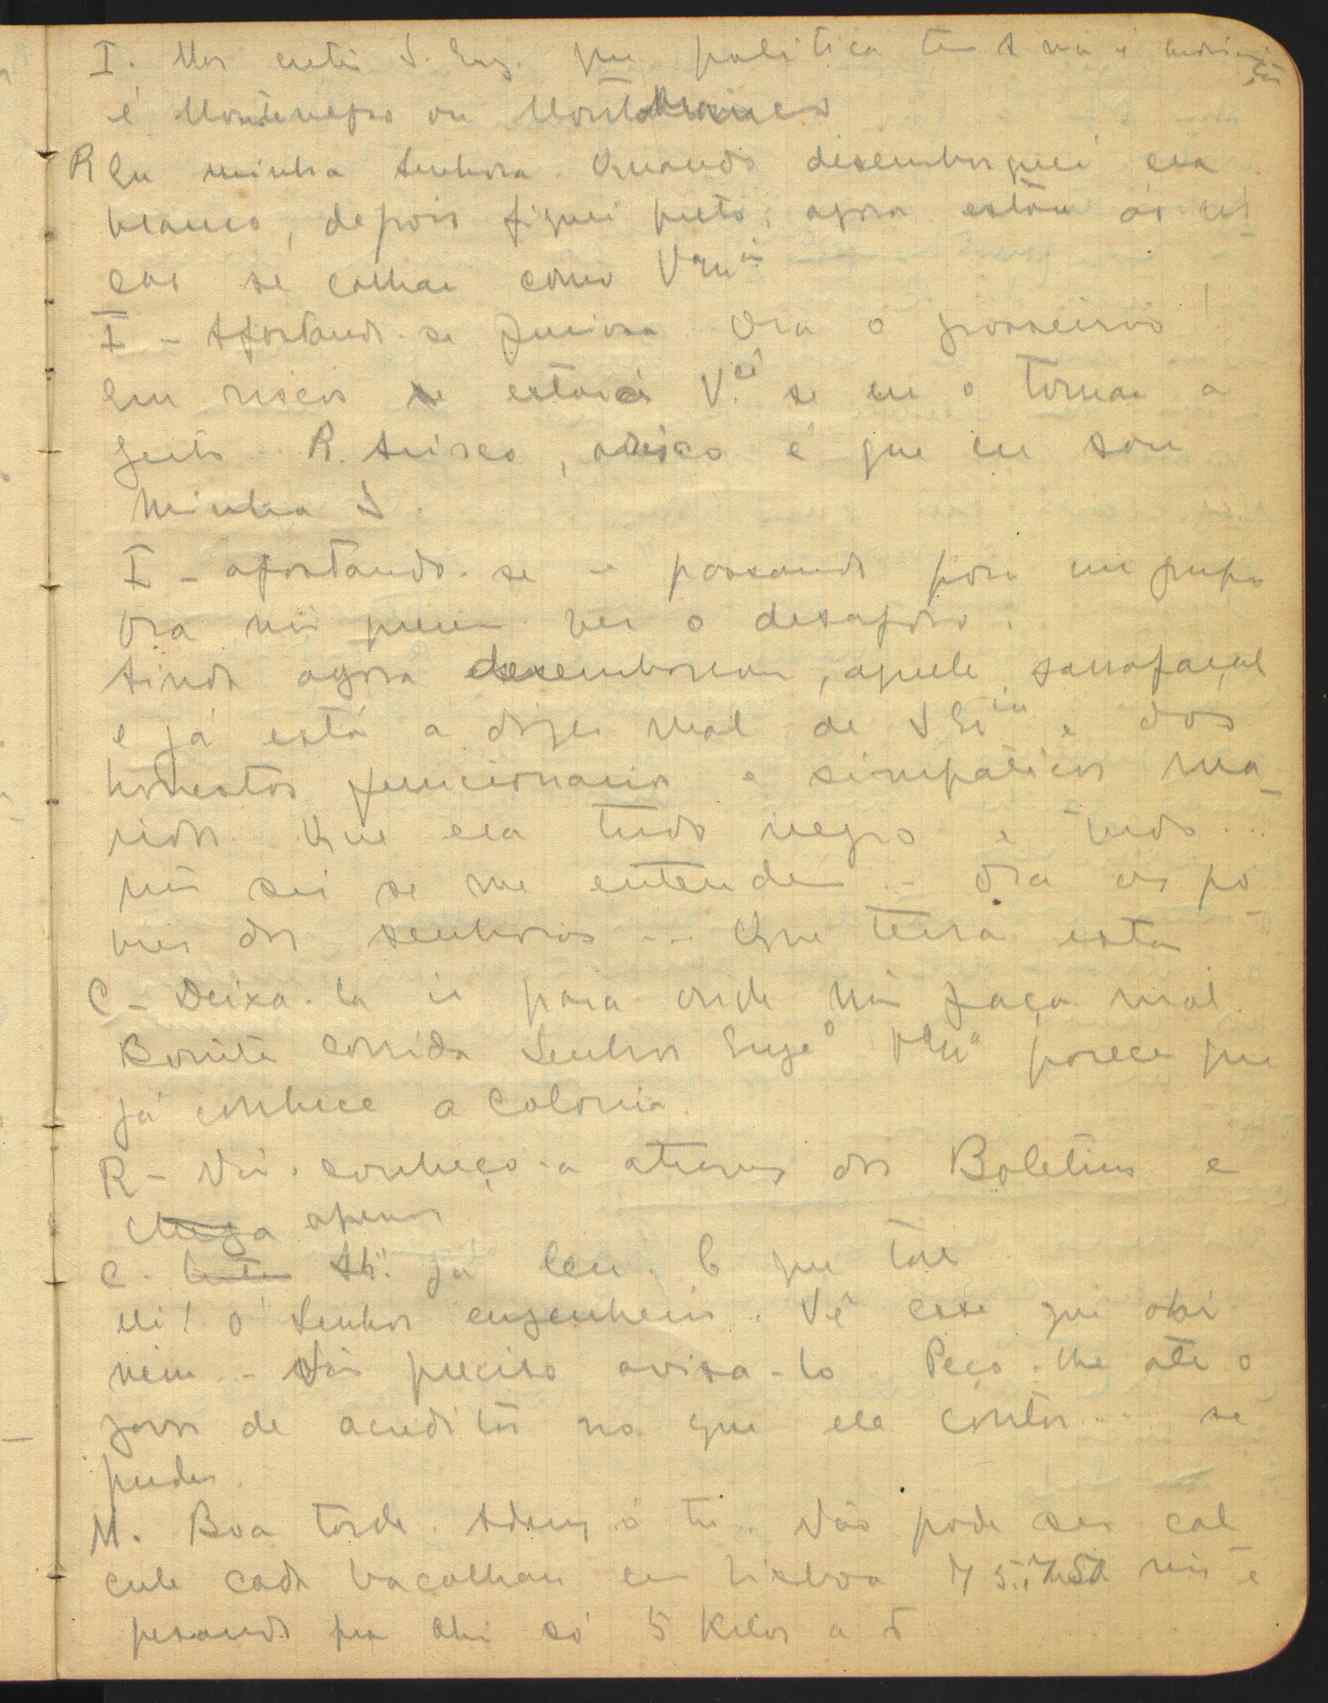 I. Mas então S. Eng. que politica tem S não é indiscrição
é Montenegro ou Montebranco
R Eu minha Senhora. Quando desembarquei era
branco, depois fiquei preto; agora estou ás ris
cas se calhar como V
I - Afastando-se furiosa Ora o grosseirão!
Em riscos estará V. se eu o tornar a
R. Arisco, arisco é que eu sou
Minha S.
I - afastando-se e passando por um grupo
Ora não querem ver o desaforo.
Ainda agora desembarcou, aquele sarrafaçal
e já está a dizer mal de S e dos
honestos funcionarios e simpáticos ma-
ridos. Que era tudo negro e tudo ...
não sei se me entendem .. Ora os po-
bres dos senhores ... Que terra esta
C - Deixa-la ir para onde não faça mal.
Bonita corrida Senhor Enge° parece que
já conhece a Colonia.
R - Não. conheço-a atravez dos Boletins e
chega apenas
C. Ah! já leu. E que tal
Ui! Ó Senhor engenheiro. Vê esse que ahi
vem - Não preciso avisa-lo. Peço-lhe até o
favor de acreditar no que ele contar ... se
puder.
M. Boa tarde. Adeus ó tu .. Não pode ser cal
cule cada bacalhau em Lisboa não é
pesando por ahi só 5 kilos a 5